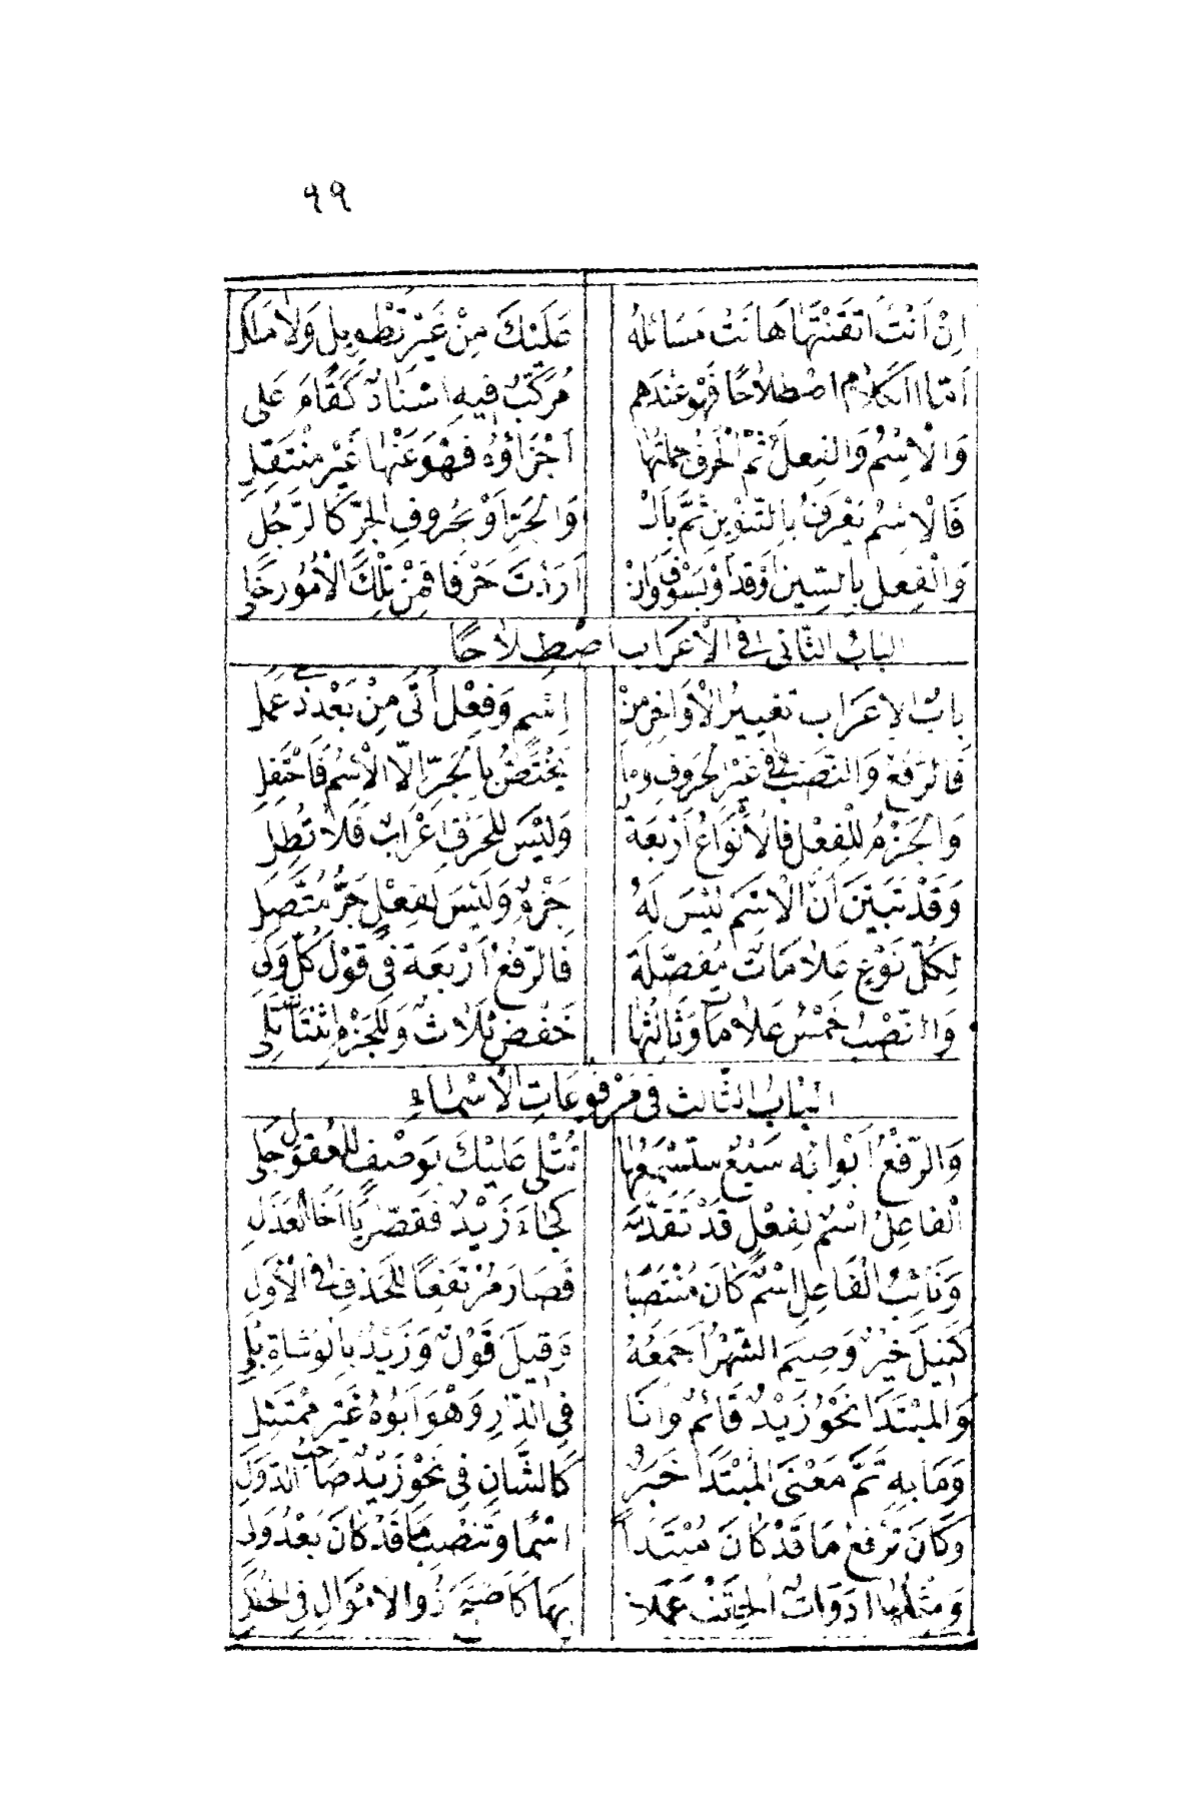 ٩٩
إِنْ أَنْتَ أَتْقَنْتَهَا هَانَتْ مَسَائِلُهُ عَلَيْكَ مِنْ غَيْرِ تَطْوِيلٍ وَلَا مَلَلِ
أَمَّا الْكَلَامُ اصْطِلَاحًا فَهْوَ عِنْدَهُمُ مُرَكَّبٌ فِيهِ إِسْنَادٌ كَقَامَ عَلِي
وَالْاِسْمُ وَالْفِعْلُ ثُمَّ الْحَرْفُ جُمْلَتُهَا أَجْزَاؤُهُ فَهْوَ عَنْهَا غَيْرُ مُنْتَقِلِ
فَالْاِسْمُ يُعْرَفُ بِالتَّنْوِينِ ثُمَّ بِأَلْ وَالْجَرِّ أَوْ بِحُرُوفِ الْجَرِّ كَالرَّجُلِ
وَالْفِعْلُ بِالسِّينِ أَوْ قَدْ أَوْ بِسَوْفَ وَإِنْ أَرَدْتَ حَرْفًا فَمِنْ تِلْكَ الْأُمُورِ خَلِي
الباب الثاني في الاعراب اصطلاحا
بابُ الاعرابِ تغييرُ الْأَوَاخِرِ مِنْ إِسْمٍ وَفِعْلٍ أَتَى مِنْ بَعْدِ ذِي عَمَلِ
فَالرَّفْعُ وَالنَّصْبُ فِي غَيْرِ الْحُرُوفِ وما يَخْتَصُّ بِالْجَرِّ إِلَّا الْاِسْمُ فَاحْتَفِلِ
وَالْجَزْمُ لِلْفِعْلِ فَالْأَنْوَاعُ أَرْبَعَةٌ وَلَيْسَ لِلْحَرْفِ إِعْرَابٌ فَلَا تُطِلِ
وَقَدْ تَبَيَّنَ أَنَّ الْاِسْمَ لَيْسَ لَهُ جَزْمٌ وَلَيْسَ لِفِعْلٍ جَرُّ مُتَّصِلِ
لِكُلِّ نَوْعٍ عَلَامَاتٌ مُفَصَّلَةٌ فَالرَّفْعُ أَرْبَعَةٌ فِي قَوْلِ كُلِّ وَلِي
وَالنَّصْبُ خَمْسُ عَلَامَاتٍ وَثَالِثُهَا خَفْضٌ ثَلَاثٌ وَلِلْجَزْمِ اثْنَتَانِ تَلِي
الباب الثالث في مرفوعات الأسماء
وَالرَّفْعُ أَبْوَابُهُ سَبْعٌ سَتَسْمَعُهَا تُتْلَى عَلَيْكَ بِوَصْفٍ لِلْعُقُولِ جَلِي
الْفَاعِلُ اسْمٌ لِفِعْلٍ قَدْ تَقَدَّمَهُ كَجَاءَ زَيْدٌ فَقَصِّرْ يَا أَخَا الْعَذَلِ
وَنَائِبُ الْفَاعِلِ اسْمٌ كَانَ مُنْتَصِبًا فَصَارَ مُرْتَفِعًا لِلْحَذْفِ فِي الْأُوَلِ
كَنِيلَ خَيْرٌ وَصِيمَ الشَّهْرُ أَجْمَعُهُ وَقِيلَ قَوْلٌ وَزَيْدٌ بِالْوُشَاةِ بُلِي
وَالْمُبْتَدَا نَحْوُ زَيْدٌ قَائِمٌ وَأَنَا فِي الدَّارِ وَهْوَ أَبُوهُ غَيْرُ مُمْتَثِلِ
وَمَا بِهِ تَمَّ مَعْنَى الْمُبْتَدَا خَبَرٌ كَالشَّانِ فِي نَحْوِ زَيْدٌ صَاحِبُ الدُّوَلِ
وَكَانَ تَرْفَعُ مَا قَدْ كَانَ مُبْتَدَأً اسْمًا وَتَنْصِبُ مَا قَدْ كَانَ بَعْدُ وَلِي
وَمِثْلُهَا أَدَوَاتٌ أُلْحِقَتْ عَمَلًا بِهَا كَأَضْحَى ذُو الْأَمْوَالِ فِي الْحُلَلِ